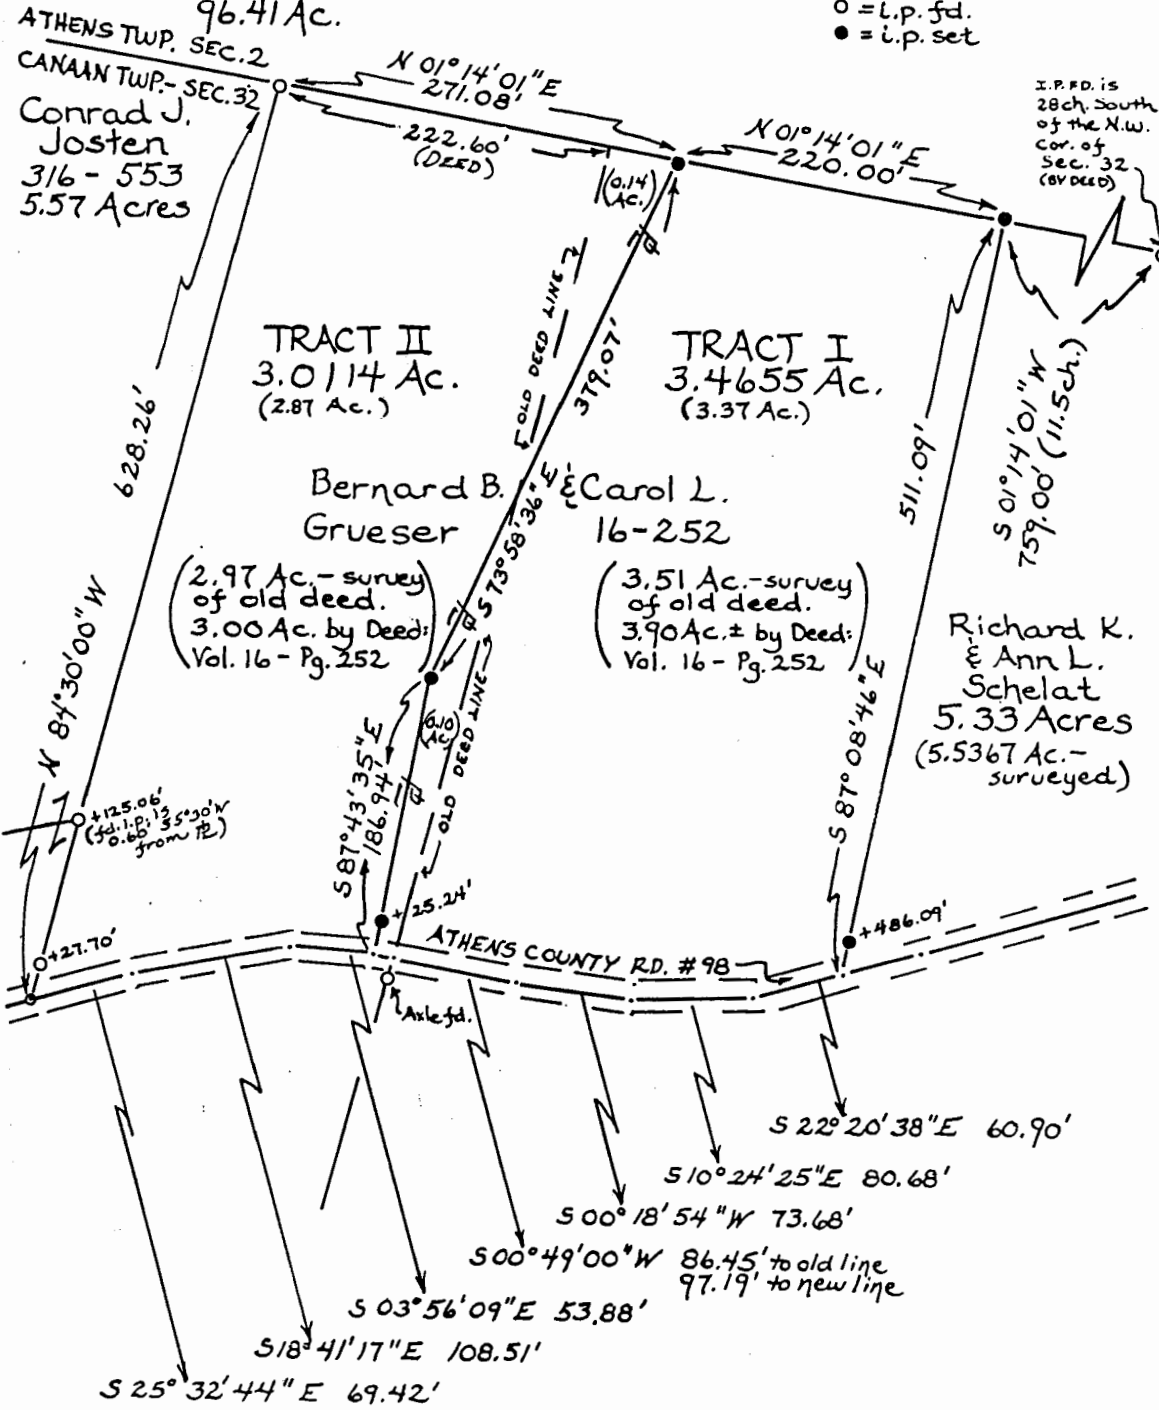 96.41 Ac.
o = i.p. fd.
● = i.p. set
ATHENS TWP. SEC. 2
CANAAN TWP.- SEC. 32
Conrad J.
Josten
316 - 553
5.57 Acres
N 01° 14' 01" E
271.08'
222.60'
(DEED)
(0.14
AC.)
N 01° 14' 01" E
220.00'
I.P. FD. is
28ch. South
of the N.W.
cor. of
Sec. 32
(BY DEED)
628.26'
N 84° 30' 00" W
TRACT II
3.0114 Ac.
(2.87 Ac.)
OLD DEED LINE
379.07'
S 73° 58' 36" E
TRACT I
3.4655 Ac.
(3.37 Ac.)
511.09'
S 87° 08' 46" E
S 01° 14' 01" W
759.00' (11.5ch.)
Bernard B. & Carol L.
Grueser 16-252
(2.97 Ac.- survey
of old deed.
3.00 Ac. by Deed:
Vol. 16 - Pg. 252)
(3.51 Ac.-survey
of old deed.
3.90 Ac.± by Deed:
Vol. 16 - Pg. 252)
Richard K.
& Ann L.
Schelat
5.33 Acres
(5.5367 Ac.-
surveyed)
(0.10
AC.)
OLD DEED LINE
S 87° 43' 35" E
186.94'
+125.06'
(fd. i.p. is
0.60' S5°30'W
from ꟼL)
+27.70'
+25.24'
+486.09'
ATHENS COUNTY RD. #98
Axle fd.
S 22° 20' 38" E 60.90'
S 10° 24' 25" E 80.68'
S 00° 18' 54" W 73.68'
S 00° 49' 00" W 86.45' to old line
97.19' to new line
S 03° 56' 09" E 53.88'
S 18° 41' 17" E 108.51'
S 25° 32' 44" E 69.42'